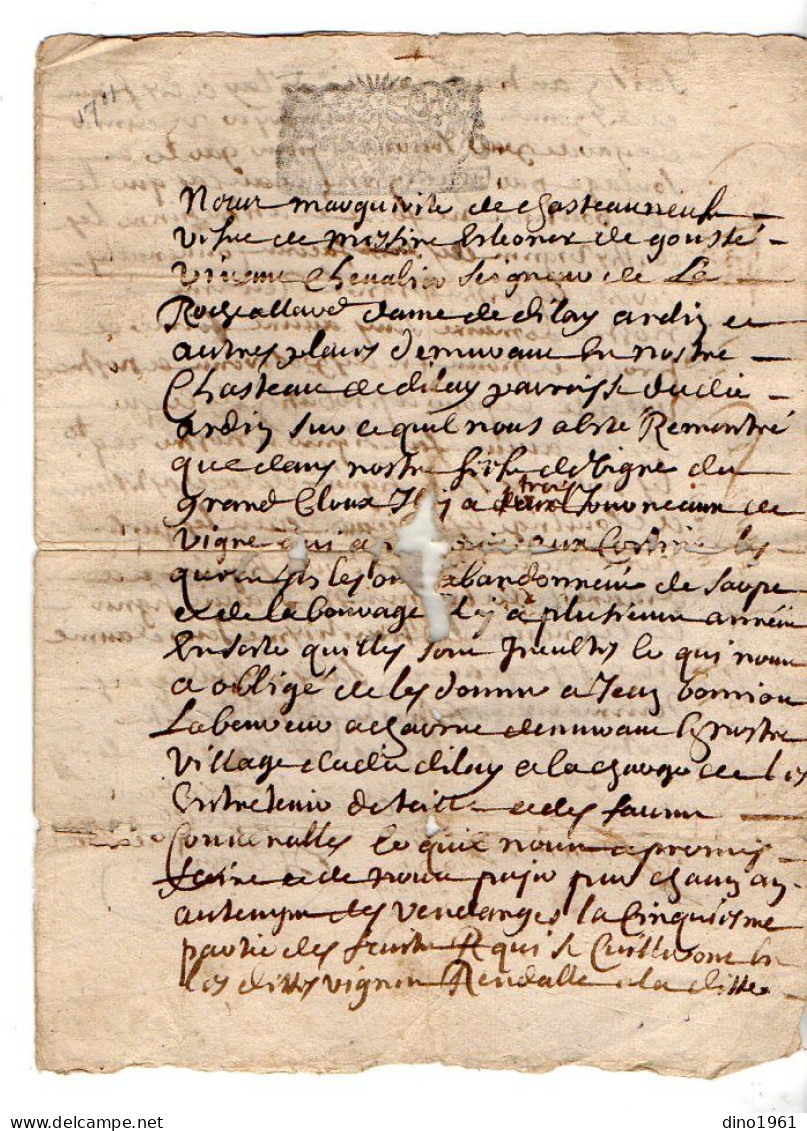 Nous marguirite de chasteauneuf
vefve de messire Eleonor de gousté
vivant Chevalier seigneur de La
Rocheallard dame de dilay ardin et
autres places demurant En nostre
Chasteau de dilay parroisse dudit
ardin sur ce quil nous a esté Remontré
que dans nostre fiefs de vigne du
grand Cloux Il y a trois Journeaux de
vigne qui
les ont abandonnée de
et de labourage Il y a plusieurs année
En sorte quilles sont Incultes ce qui nous
a obligé de les donner a Jean
Laboureur demurant En nostre
village dudit dilay a la charge de les
Entretenir de taille et des
ce quil nous a promis
faire et de nous par chacun an
au temps des vendanges la Cinquiesme
partie des fruits qui se Cuilleront En
les dittes vignes Rendable a la ditte
1701
dino1961